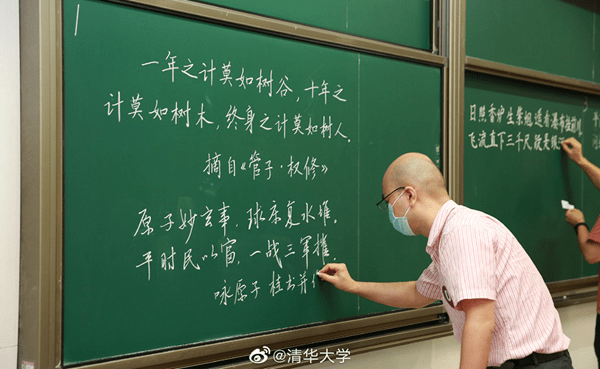 1
一年之计莫如树谷，十年之
计莫如树木，终身之计莫如树人。
摘自《管子·权修》
原子妙玄事，球复水堆。
平时民以富，一战三军摧。
咏原子
日照香炉生紫烟遥看瀑布挂前川
飞流直下三千尺疑是银
@清华大学